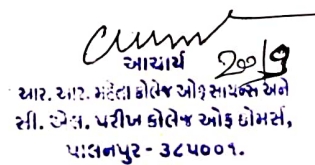 આચાર્ય 20/9
આર. આર. મહેતા કોલેજ ઓફ સાયન્સ અને
સી. એલ. પરીખ કોલેજ ઓફ કોમર્સ,
પાલનપુર - ૩૮૫૦૦૧.